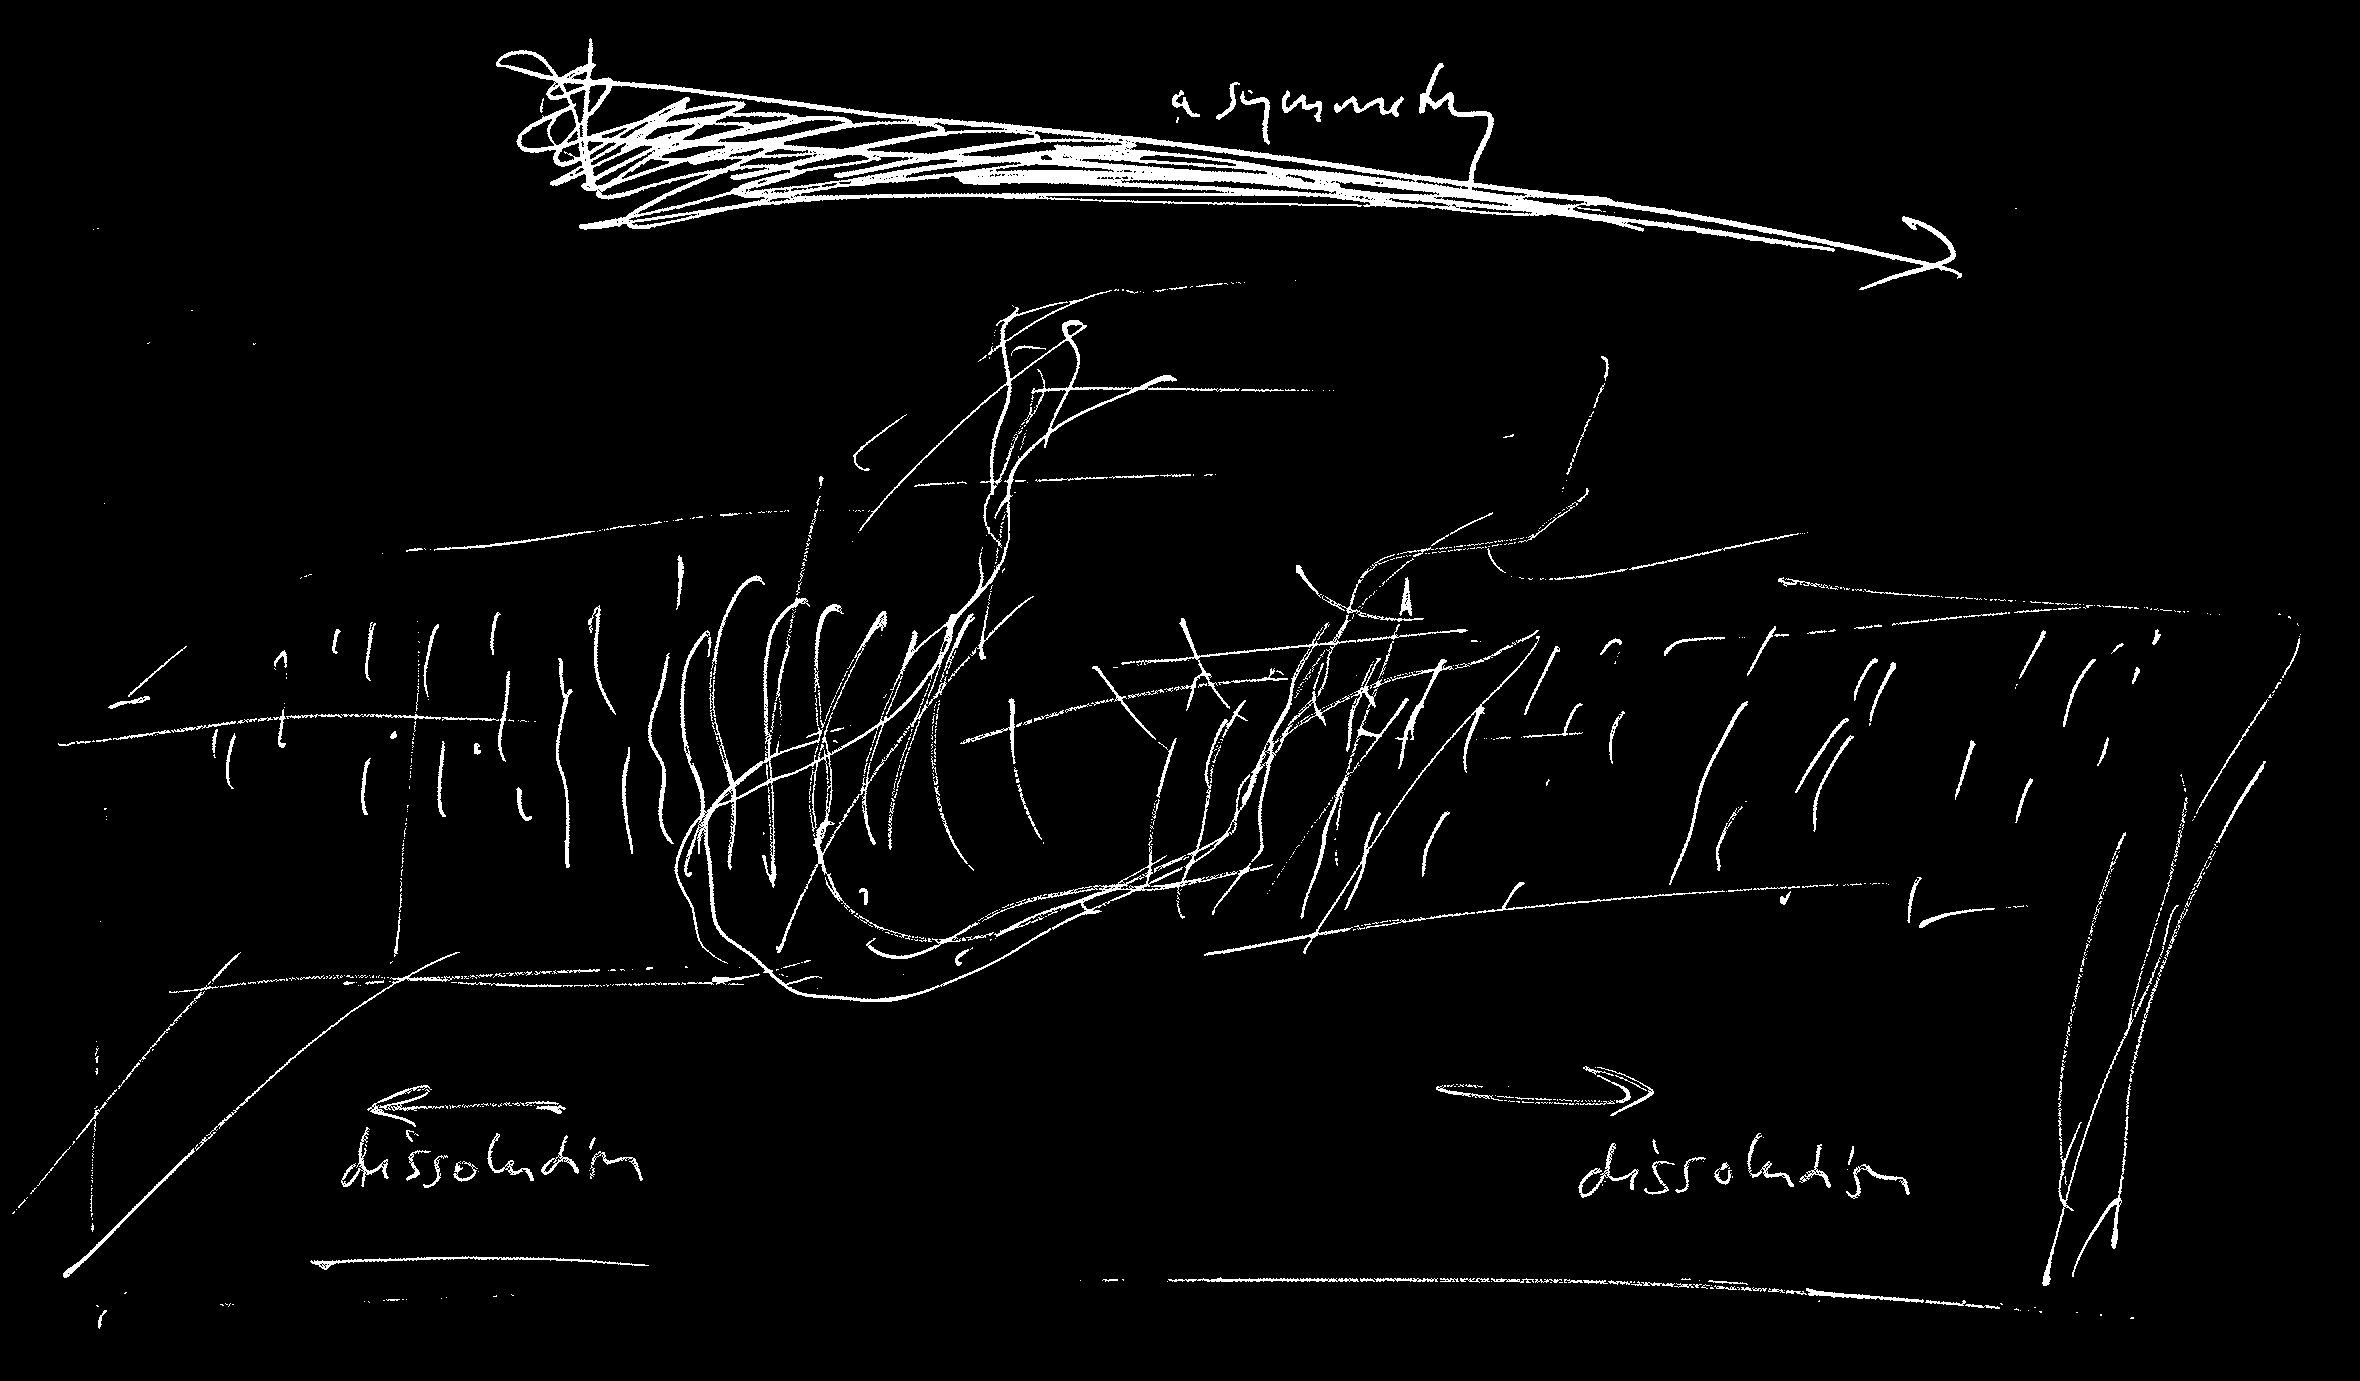 asymmetry
dissolution
dissolution